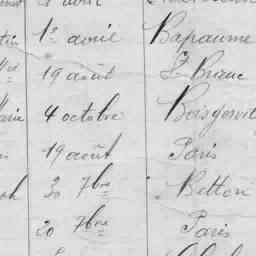 1er avril Bapaume
19 août St Brieuc
4 octobre Boisgervil
19 août Paris
30 7bre Betton
20 7bre Paris